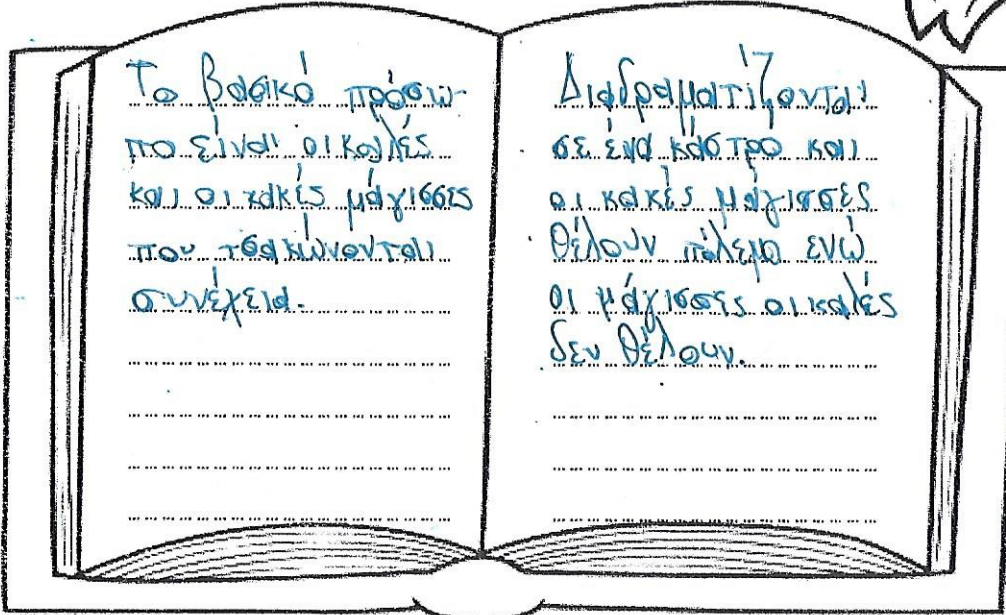 Το βασικό πρόσω-
πο είναι οι καλές
και οι κακές μάγισσες
που τσακώνονται
συνέχεια.
Διαδραματίζονται
σε ένα κάστρο και
οι κακές μάγισσες
θέλουν πόλεμο ενώ
οι μάγισσες οι καλές
δεν θέλουν.